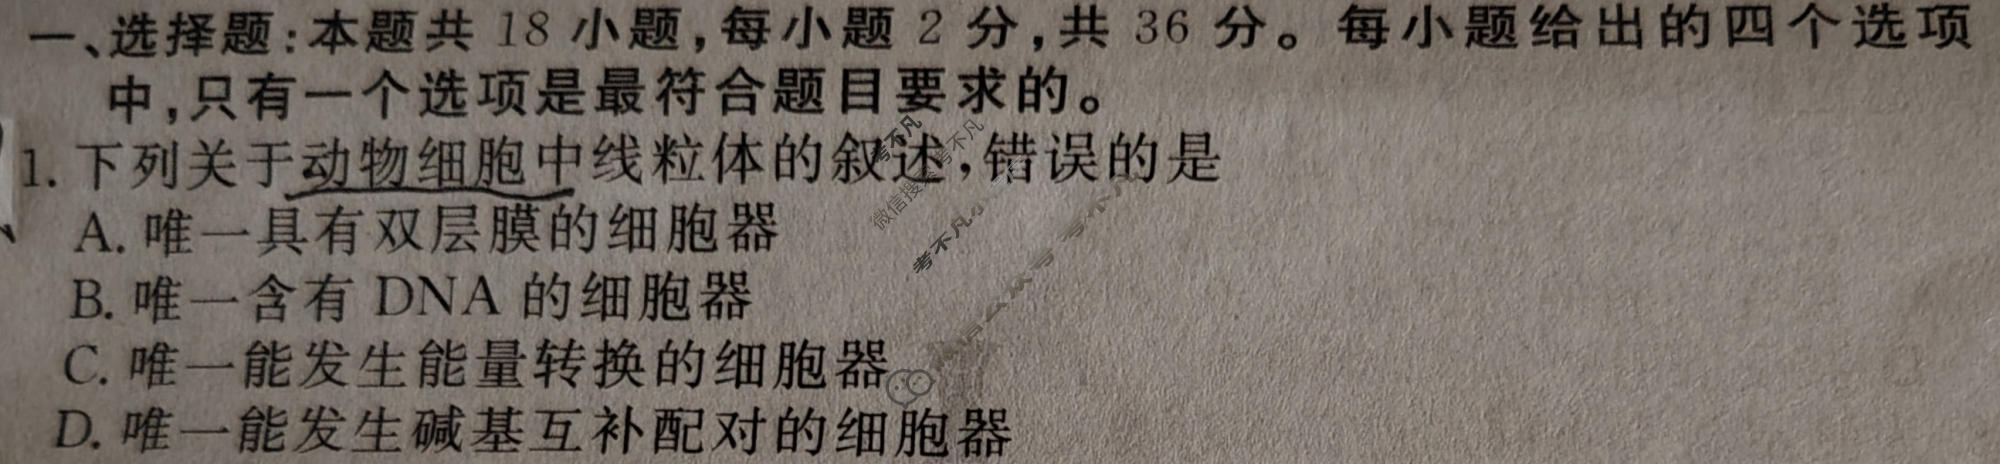 一、选择题:本题共 18 小题,每小题 2 分,共 36 分。每小题给出的四个选项
中,只有一个选项是最符合题目要求的。
1. 下列关于动物细胞中线粒体的叙述,错误的是
A. 唯一具有双层膜的细胞器
B. 唯一含有 DNA 的细胞器
C. 唯一能发生能量转换的细胞器
D. 唯一能发生碱基互补配对的细胞器
考不凡
微信搜索 考不凡
考不凡